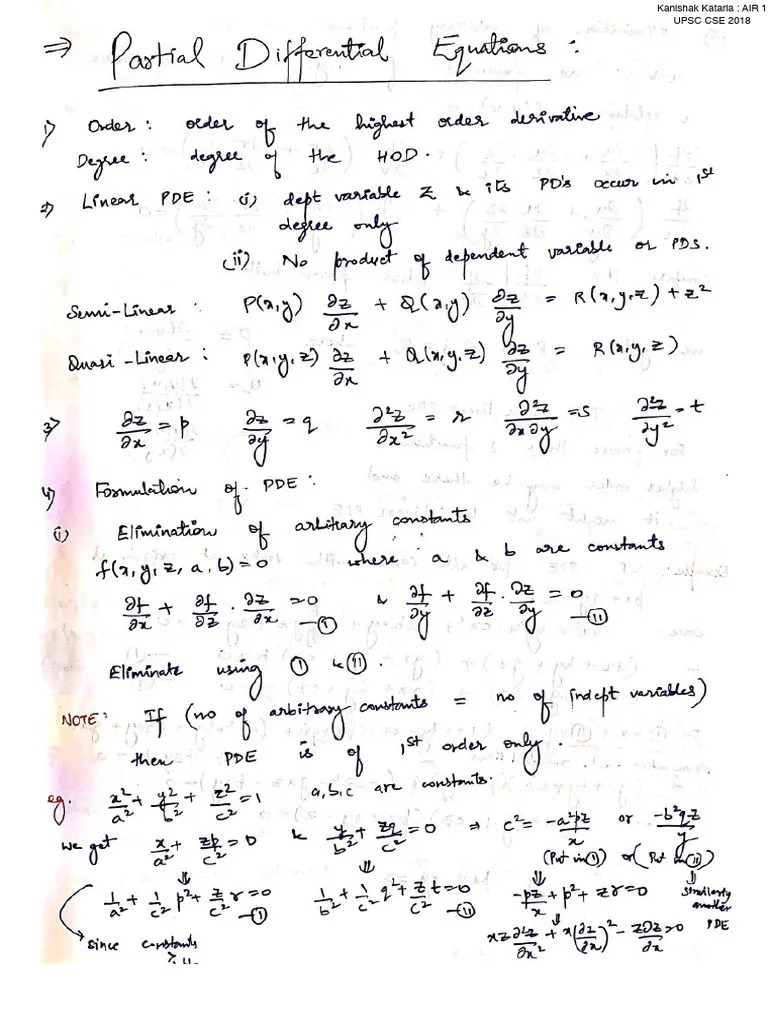 Kanishak Kataria : AIR 1
UPSC CSE 2018
⇒ Partial Differential Equations :
1) Order : order of the highest order derivative
Degree : degree of the HOD.
2) Linear PDE : (i) dept variable z & its PD's occur in 1st
degree only
(ii) No product of dependent variable or PDs.
Semi-Linear : P(x,y) ∂z/∂x + Q(x,y) ∂z/∂y = R(x,y,z) + z²
Quasi-Linear : P(x,y,z) ∂z/∂x + Q(x,y,z) ∂z/∂y = R(x,y,z)
3) ∂z/∂x = p ∂z/∂y = q ∂²z/∂x² = r ∂²z/∂x∂y = s ∂²z/∂y² = t
4) Formulation of PDE :
(i) Elimination of arbitary constants
f(x,y,z,a,b)=0 where a & b are constants
∂f/∂x + ∂f/∂z · ∂z/∂x = 0 —(I) & ∂f/∂y + ∂f/∂z · ∂z/∂y = 0 —(II)
Eliminate using (I) & (II).
NOTE: If (no of arbitrary constants = no of indept variables)
then PDE is of 1st order only.
eg. x²/a² + y²/b² + z²/c² = 1 a,b,c are constants.
we get x/a² + zp/c² = 0 & y/b² + zq/c² = 0 ⇒ c² = -a²pz/x or -b²qz/y
(Put in (I)) or (Put in (II))
1/a² + 1/c² p² + z/c² r = 0 —(I) 1/b² + 1/c² q² + z/c² t = 0 —(II) -pz/x + p² + zr = 0 similarly another PDE
xz ∂²z/∂x² + x(∂z/∂x)² - z∂z/∂x = 0
since constants